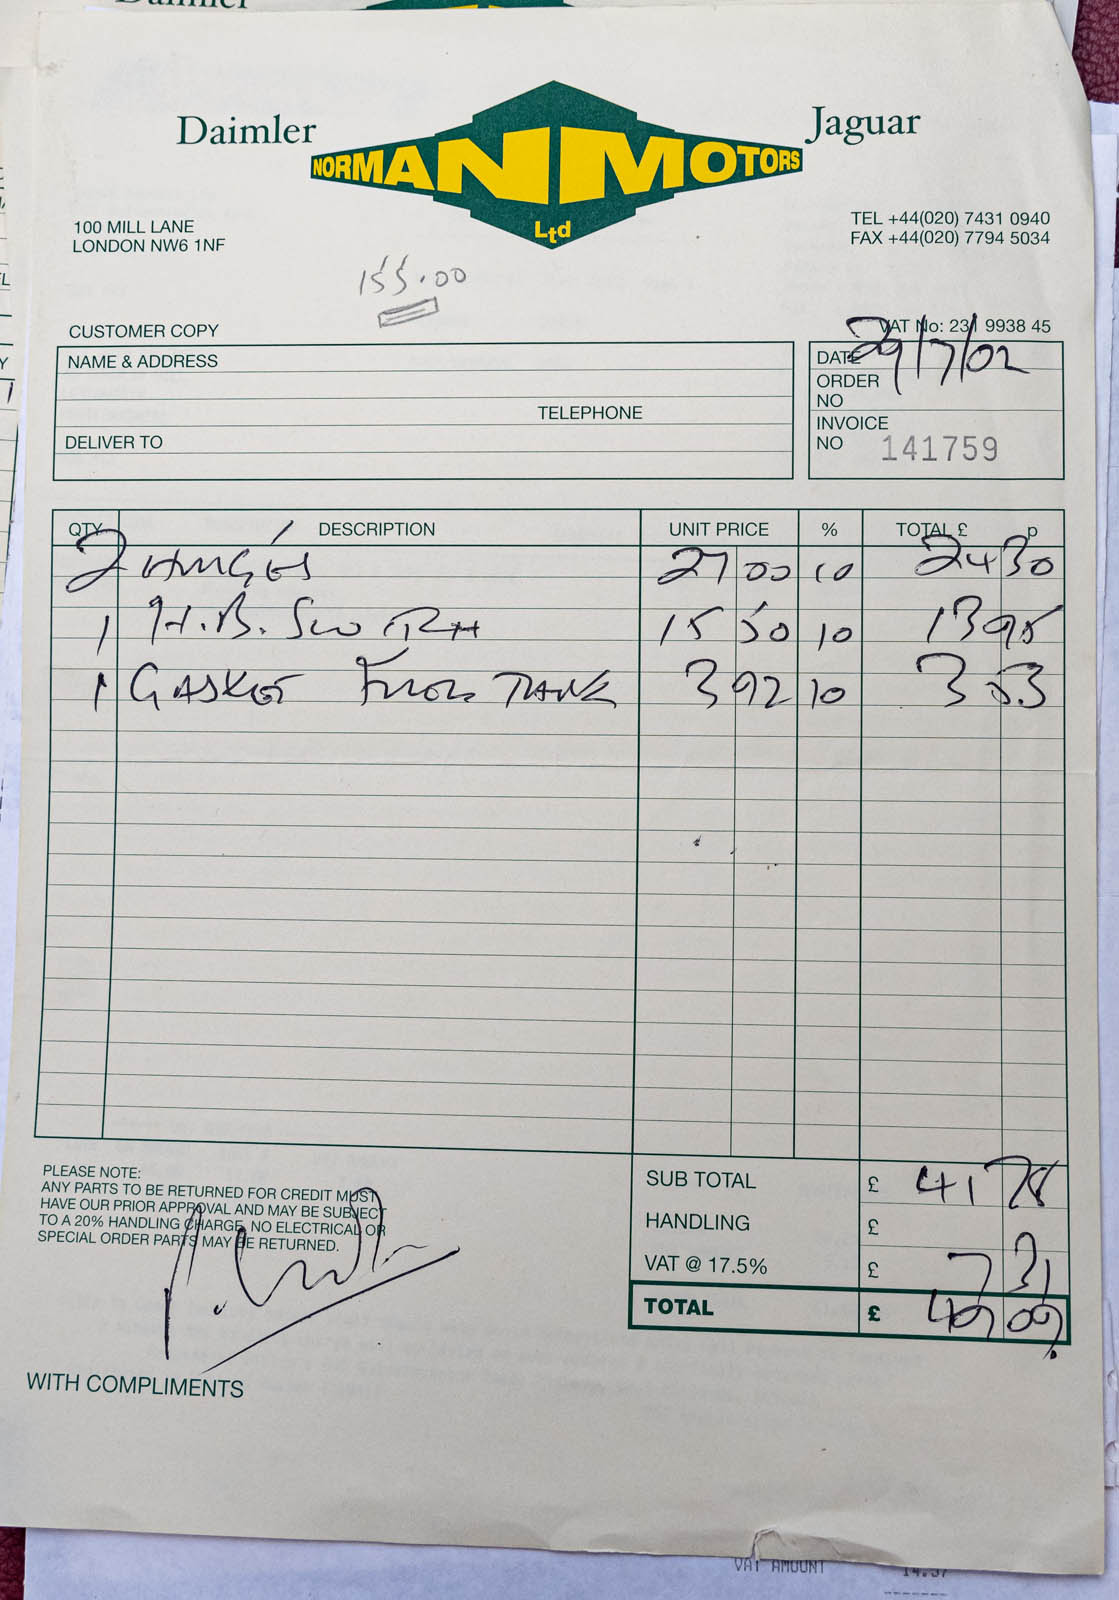 Daimler
Daimler
Jaguar
NORMAN MOTORS
Ltd
100 MILL LANE
LONDON NW6 1NF
TEL +44(020) 7431 0940
FAX +44(020) 7794 5034
155.00
CUSTOMER COPY
VAT No: 231 9938 45
NAME & ADDRESS
TELEPHONE
DELIVER TO
DATE 29/7/02
ORDER
NO
INVOICE
NO 141759
QTY DESCRIPTION UNIT PRICE % TOTAL £ p
2 HINGES 27 00 10 24 30
1 H.B. SW RH 15 50 10 13 95
1 GASKET FUEL TANK 3 92 10 3 53
PLEASE NOTE:
ANY PARTS TO BE RETURNED FOR CREDIT MUST
HAVE OUR PRIOR APPROVAL AND MAY BE SUBJECT
TO A 20% HANDLING CHARGE, NO ELECTRICAL OR
SPECIAL ORDER PARTS MAY BE RETURNED.
SUB TOTAL £ 41 78
HANDLING £
VAT @ 17.5% £ 7 31
TOTAL £ 49 09
WITH COMPLIMENTS
VAT AMOUNT 14.37